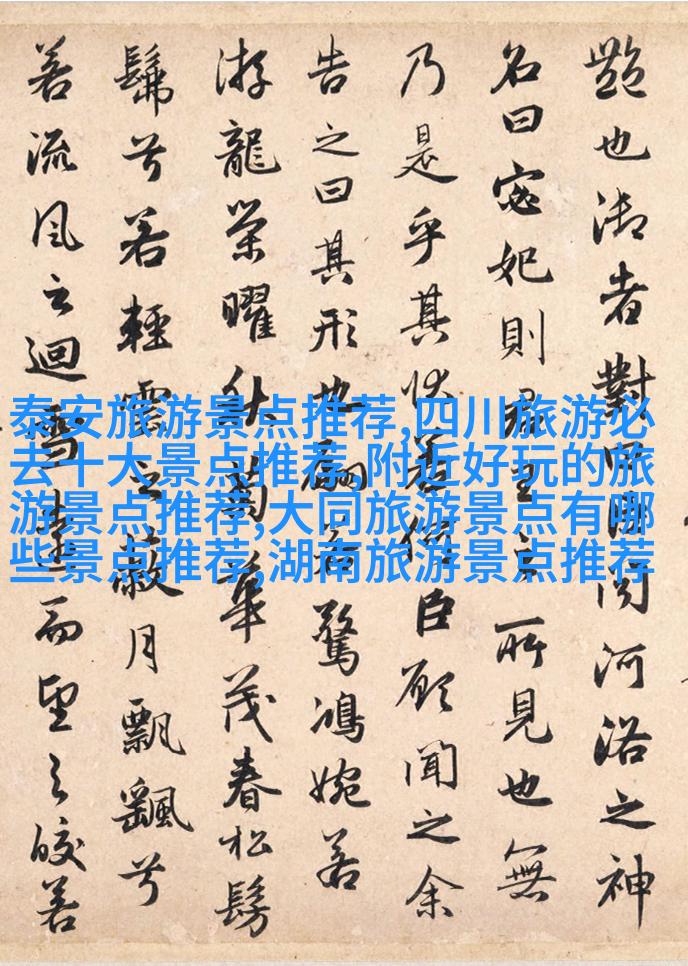 艷也御者對曰臣聞河洛之神
名曰宓妃則君王之所見也無
乃是乎其狀若何臣願聞之余
告之曰其形也翩若驚鴻婉若
游龍榮曜秋菊華茂春松髣
髴兮若輕雲之蔽月飄颻兮
若流風之迴雪遠而望之皎若
泰安旅游景点推荐,四川旅游必
去十大景点推荐,附近好玩的旅
游景点推荐,大同旅游景点有哪
些景点推荐,湖南旅游景点推荐